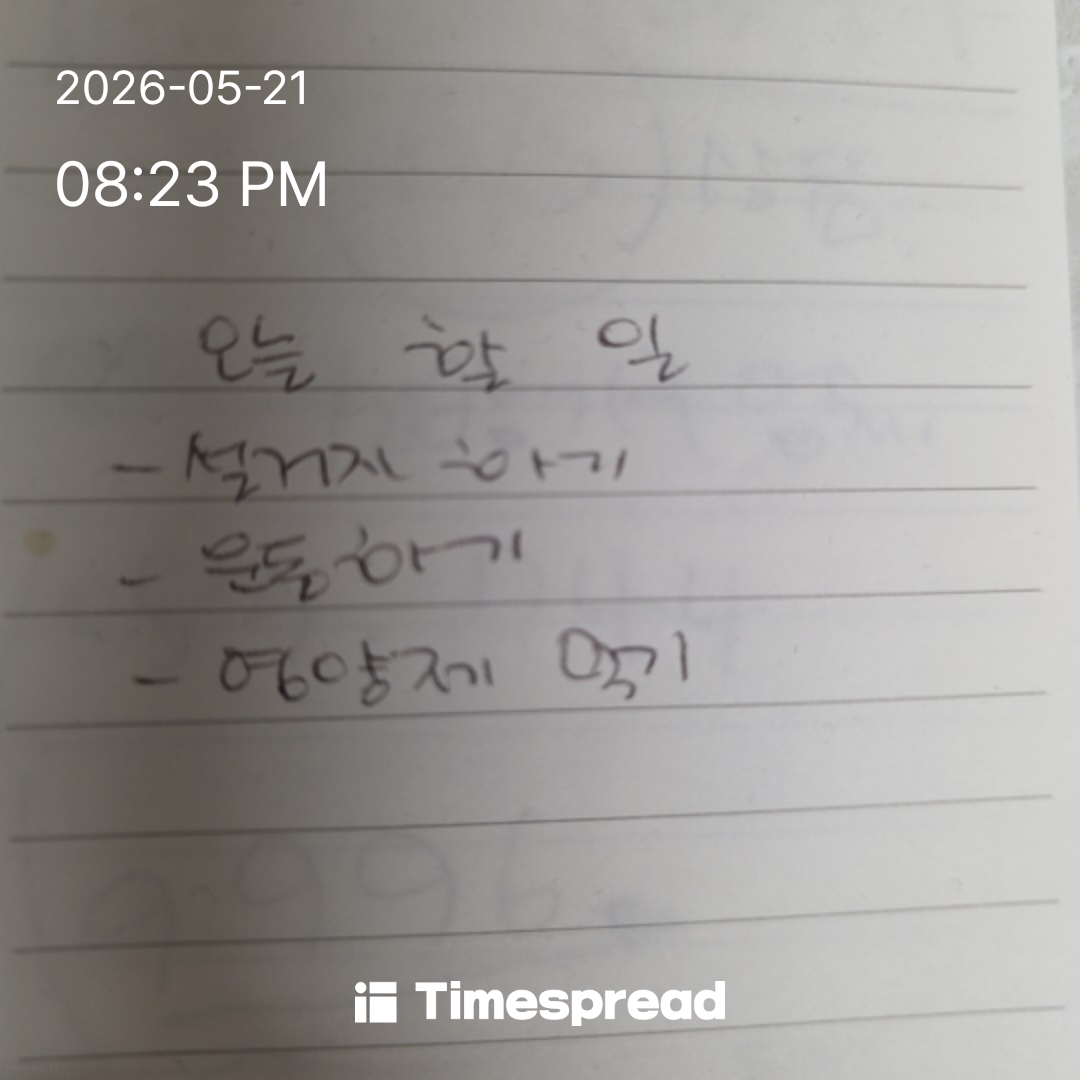 2026-05-21
08:23 PM
오늘 할 일
- 설거지 하기
- 운동하기
- 영양제 먹기
Timespread